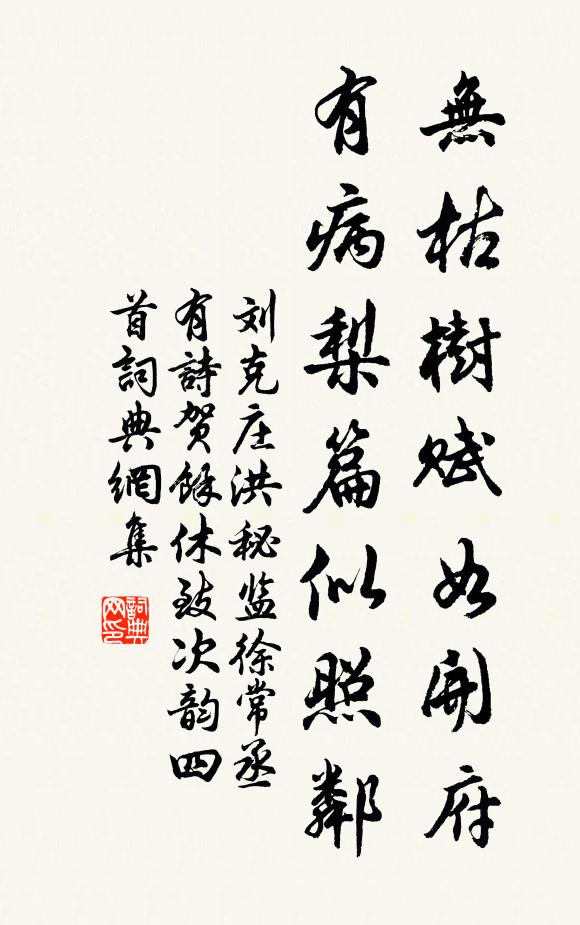 無枯樹賦如開府
有病梨篇似照鄰
刘克庄洪秘监徐常丞
有詩贺餘休致次韵四
首詞典網集
詞典网印